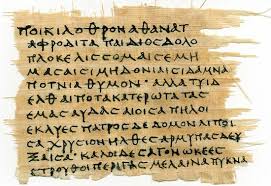 ΠΟΙΚΙΛΟΘΡΟΝΑΘΑΝΑΤ
ΑΦΡΟΔΙΤΑΠΑΙΔΙΟCΔΟΛΟ
ΠΛΟΚΕΛΙCCΟΜΑΙCΕΜΗ
ΜΑCΑΙCΙΜΗΔΟΝΙΑΙCΙΔΑΜΝΑ
ΠΟΤΝΙΑΘΥΜΟΝ·ΑΛΛΑΤΥΙΔ
ΕΛΘΑΙΠΟΤΑΚΑΤΕΡΩΤΑΤΑC
ΕΜΑCΑΥΔΑCΑΙΟΙCΑΠΗΛΟΙ
ΕΚΛΥΕCΠΑΤΡΟCΔΕΔΟΜΟΝΛΙΠΟΙ
CΑΧΡΥCΙΟΝΗΛΘΕCΑΡΜΥΠΑCΔΕΥ
ΞΑΙCΑ·ΚΑΛΟΙΔΕCΑΓΟΝΩΚΕΕC
CΤΡΟΥΘΟΙΠΕΡΙΓΑCΜΕΛΑΙΝΑΠΥΚΝΑ